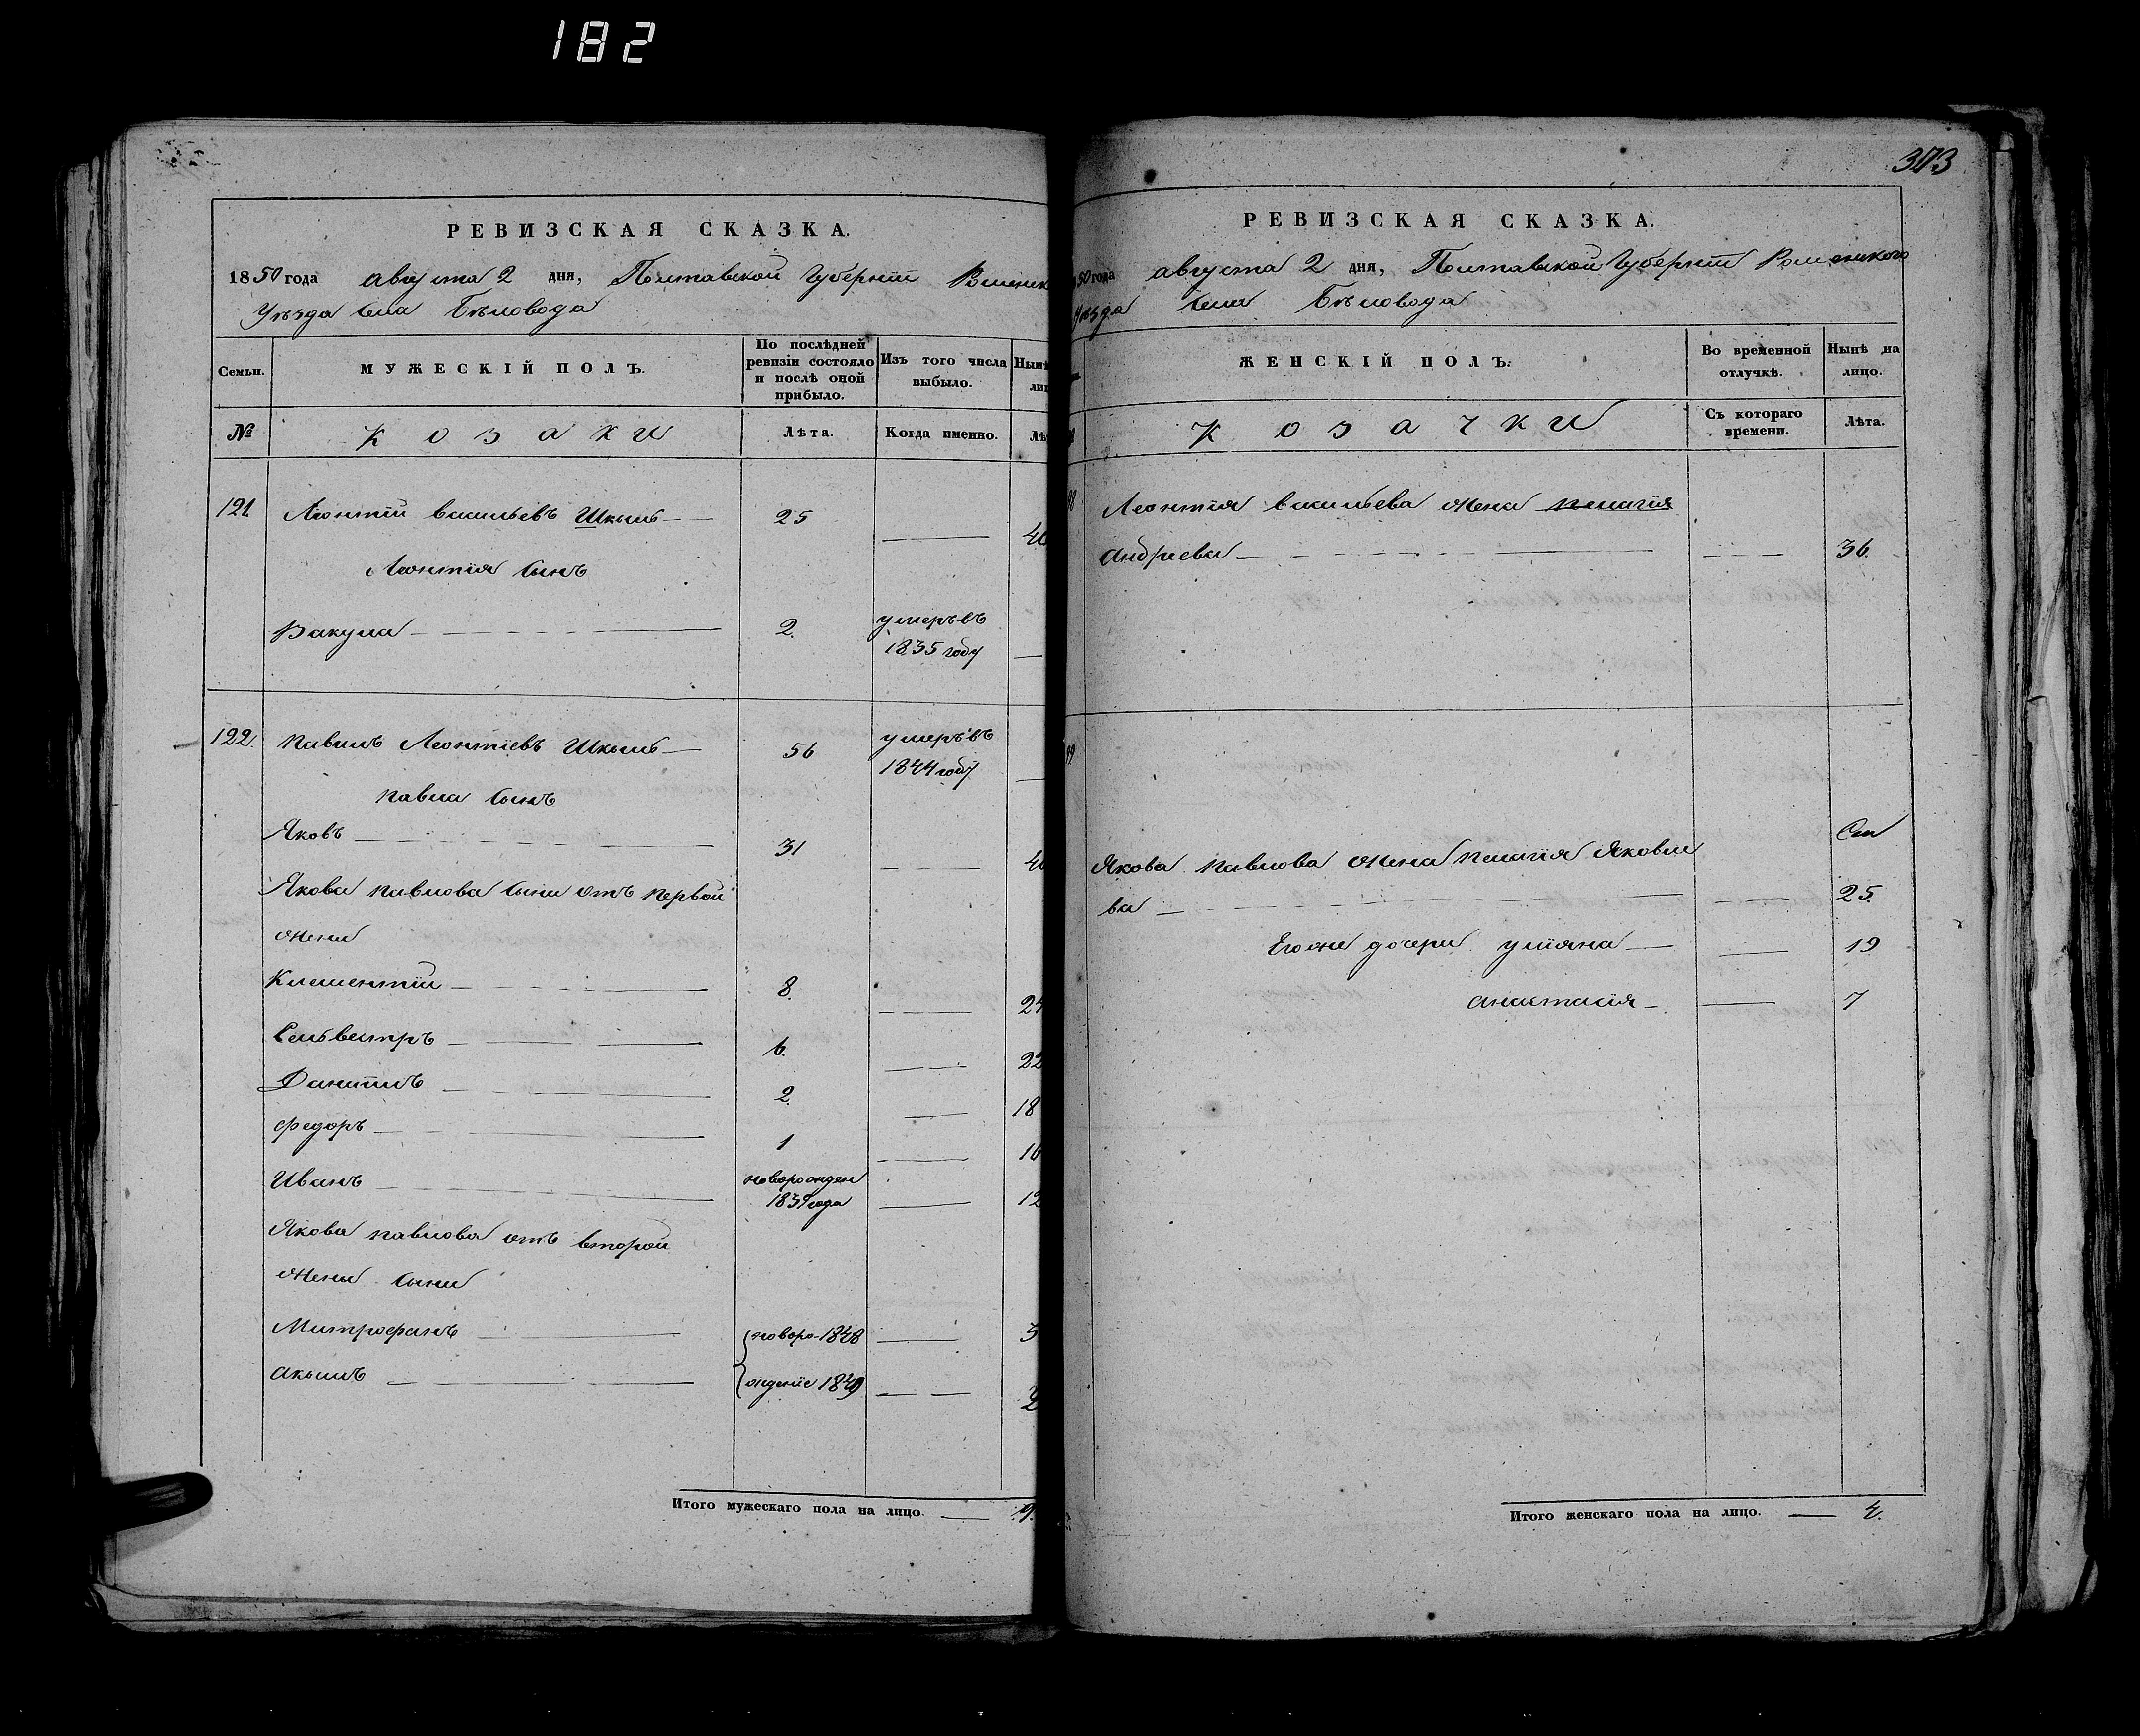 182
РЕВИЗСКАЯ СКАЗКА.
1850 года августа 2 дня, Полтавской Губерніи
Уѣзда Села Бѣловода
Семьи.
МУЖЕСКІЙ ПОЛЪ.
По послѣдней ревизіи состояло и послѣ оной прибыло.
Изъ того числа выбыло.
№
Козаки
Лѣта.
Когда именно.
121. Леонтій Васильевъ Шкыль 25
Леонтія Сынъ
Вакула 2. умеръ въ 1835 году
122. Павилъ Леонтіевъ Шкыль 56 умеръ въ 1844 году
Павла Сынъ
Яковъ 31
Якова Павлова Сыни отъ первой
жены
Климентій 8. 24
Сельвестръ 6. 22
Даніилъ 2. 18
Федоръ 1 16
Иванъ новорожден 1839 года 12
Якова Павлова отъ второй
жены Сыни
Митрофанъ новоро- 1848 3
Акымъ жденіе 1849 2
Итого мужескаго пола на лицо. 9.
373
РЕВИЗСКАЯ СКАЗКА.
50 года августа 2 дня, Полтавской Губерніи Роменского
Уѣзда Села Бѣловода
ЖЕНСКІЙ ПОЛЪ.
Во временной отлучкѣ.
Нынѣ на лицо.
Козачки
Съ котораго времени.
Лѣта.
Леонтія Васильева жена Пелагія
Андреева 36.
Якова Павлова жена Пелагія Яковле
ва 25.
Его же дочери Уліяна 19
Анастасія 7
Итого женскаго пола на лицо. 4.